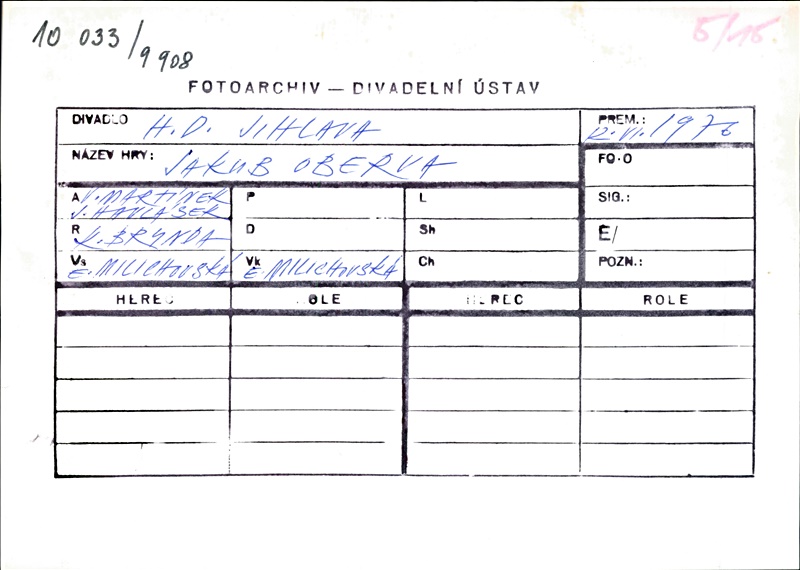 10 033/9 908
5/15
FOTOARCHIV — DIVADELNÍ ÚSTAV
DIVADLO H.D. JIHLAVA
PREM.: VI. 1976
NÁZEV HRY: JAKUB OBERVA
FO O
A V. MARTÍNEK
J. HAVLÁSEK
P
L
SIG.:
R K. BRYNDA
D
Sh
E/
Vs E. MILICHOVSKÁ
Vk E. MILICHOVSKÁ
Ch
POZN.:
HEREC
OLE
EREC
ROLE